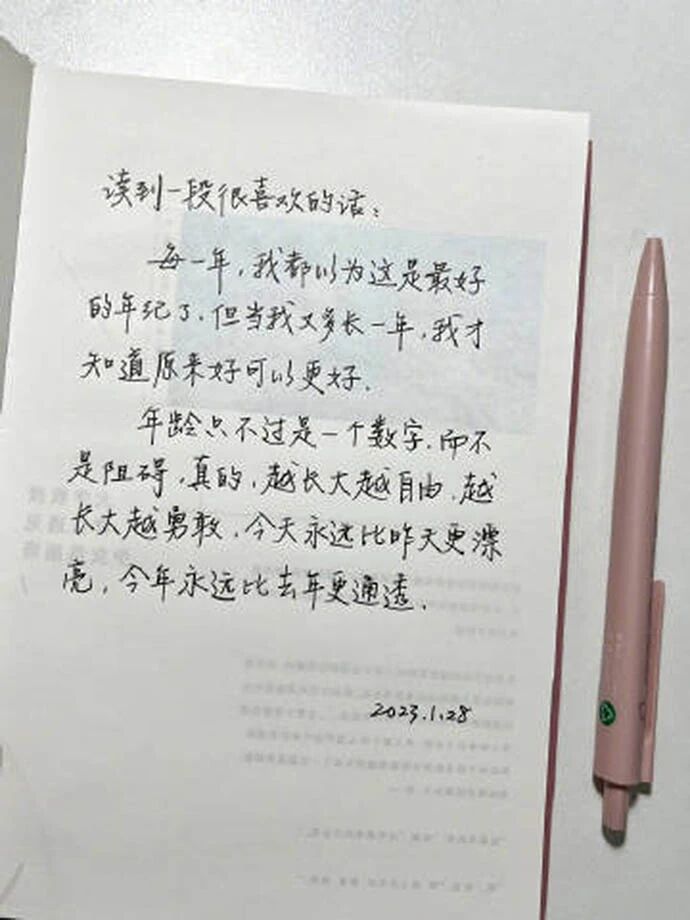 读到一段很喜欢的话：
每一年，我都以为这是最好
的年纪了，但当我又多长一年，我才
知道原来好可以更好.
年龄只不过是一个数字，而不
是阻碍，真的，越长大越自由，越
长大越勇敢，今天永远比昨天更漂
亮，今年永远比去年更通透.
2023.1.28